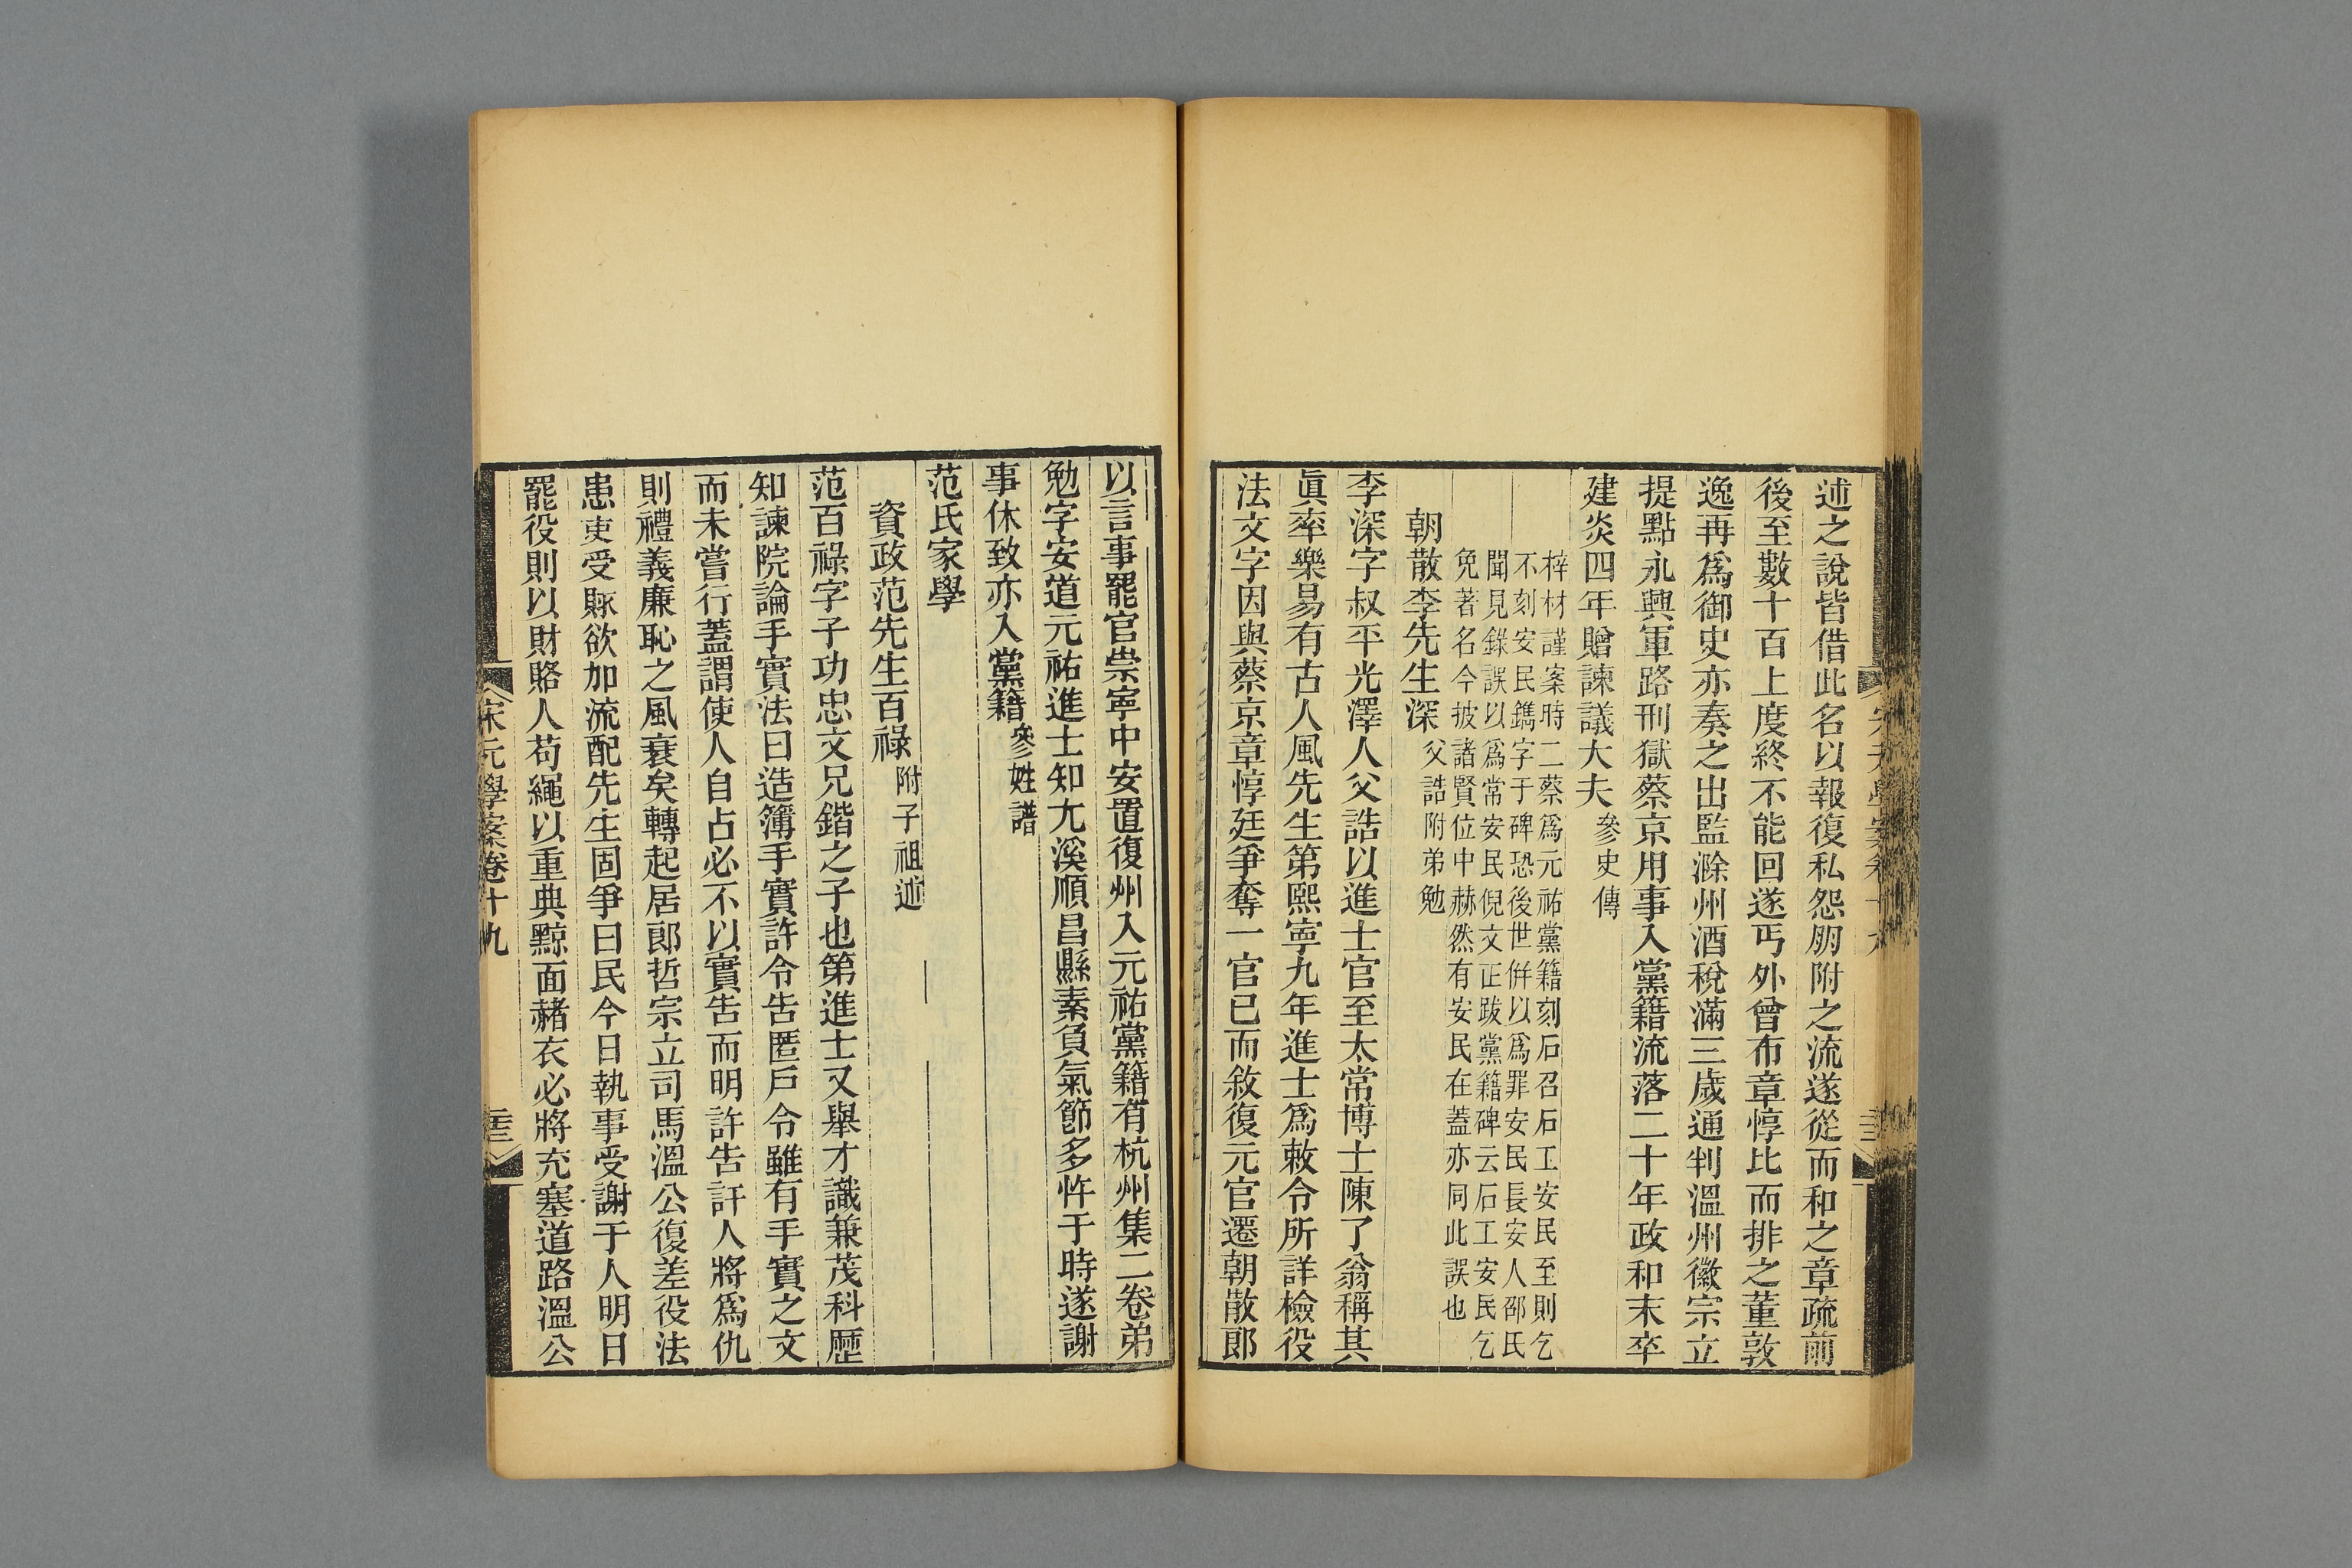 述之說皆借此名以報復私怨朋附之流遂從而和之章疏前
後至數十百上度終不能回遂丐外曾布章惇比而排之董敦
逸再爲御史亦奏之出監滁州酒稅滿三歲通判溫州徽宗立
提點永興軍路刑獄蔡京用事入黨籍流落二十年政和末卒
建炎四年贈諫議大夫參史傳
梓材謹案時二蔡爲元祐黨籍刻石召石工安民至則乞
不刻安民鐫字于碑恐後世倂以爲罪安民長安人邵氏
聞見錄誤以爲常安民倪文正跋黨籍碑云石工安民乞
免著名今披諸賢位中赫然有安民在蓋亦同此誤也
朝散李先生深父誥附弟勉
李深字叔平光澤人父誥以進士官至太常博士陳了翁稱其
眞率樂易有古人風先生第熙寧九年進士爲敕令所詳檢役
法文字因與蔡京章惇廷爭奪一官已而敘復元官遷朝散郎
以言事罷官崇寧中安置復州入元祐黨籍有杭州集二卷弟
勉字安道元祐進士知尤溪順昌縣素負氣節多忤于時遂謝
事休致亦入黨籍參姓譜
范氏家學
資政范先生百祿附子祖述
范百祿字子功忠文兄鍇之子也第進士又舉才識兼茂科歷
知諫院論手實法曰造簿手實許令告匿戶令雖有手實之文
而未嘗行蓋謂使人自占必不以實告而明許告訐人將爲仇
則禮義廉恥之風衰矣轉起居郎哲宗立司馬溫公復差役法
患吏受賕欲加流配先生固爭曰民今日執事受謝于人明日
罷役則以財賂人苟繩以重典黥面赭衣必將充塞道路溫公
宋元學案卷十九